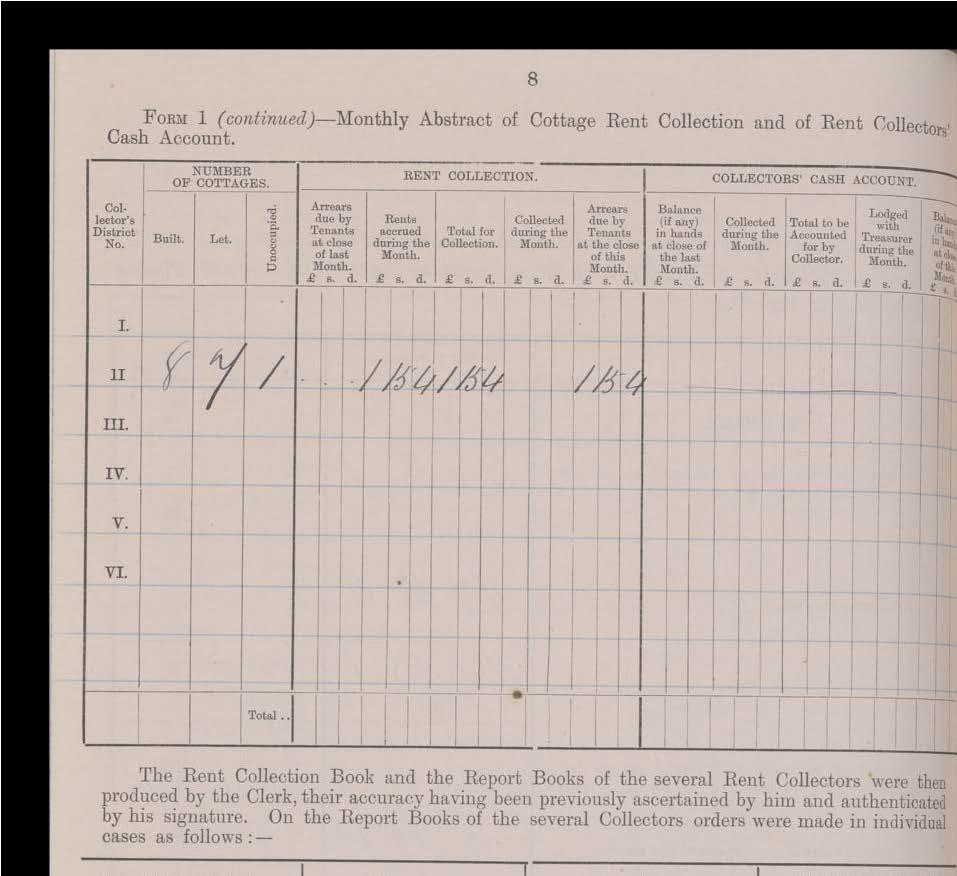 8
FORM 1 (continued)—Monthly Abstract of Cottage Rent Collection and of Rent Collectors'
Cash Account.
Collector's District No.
NUMBER OF COTTAGES.
Built.
Let.
Unoccupied.
RENT COLLECTION.
Arrears due by Tenants at close of last Month.
£ s. d.
Rents accrued during the Month.
£ s. d.
Total for Collection.
£ s. d.
Collected during the Month.
£ s. d.
Arrears due by Tenants at the close of this Month.
£ s. d.
COLLECTORS' CASH ACCOUNT.
Balance (if any) in hands at close of the last Month.
£ s. d.
Collected during the Month.
£ s. d.
Total to be Accounted for by Collector.
£ s. d.
Lodged with Treasurer during the Month.
£ s. d.
Balance (if any) in hands at close of this Month.
£ s.
I.
II 8 7 1 . . . 1 15 4 1 15 4 1 15 4
III.
IV.
V.
VI.
Total ..
The Rent Collection Book and the Report Books of the several Rent Collectors were then
produced by the Clerk, their accuracy having been previously ascertained by him and authenticated
by his signature. On the Report Books of the several Collectors orders were made in individual
cases as follows :—